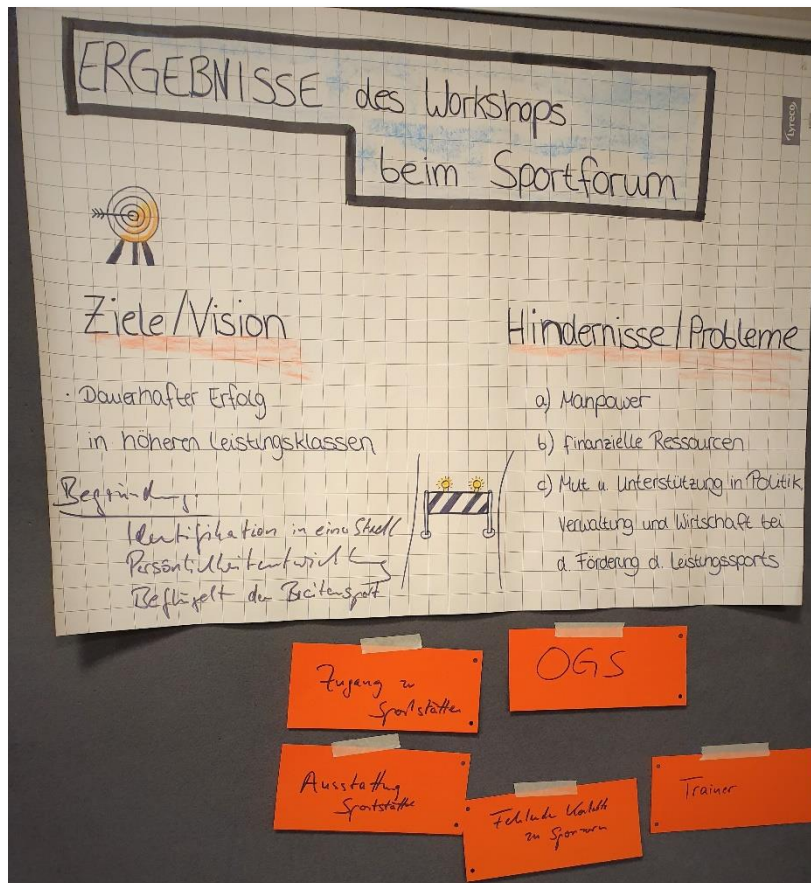 ERGEBNISSE des Workshops
beim Sportforum
Lyreco
Ziele/Vision
· Dauerhafter Erfolg
in höheren Leistungsklassen
Begründung:
Identifikation in eine Stadt
Persönlichkeitentwicklung
Beflügelt den Breitensport
Hindernisse/Probleme
a) Manpower
b) finanzielle Ressourcen
c) Mut u. Unterstützung in Politik,
Verwaltung und Wirtschaft bei
d. Förderung d. Leistungssports
Zugang zu
Sportstätten
OGS
Ausstattung
Sportstätte
Fehlende Kontakte
zu Sponsoren
Trainer